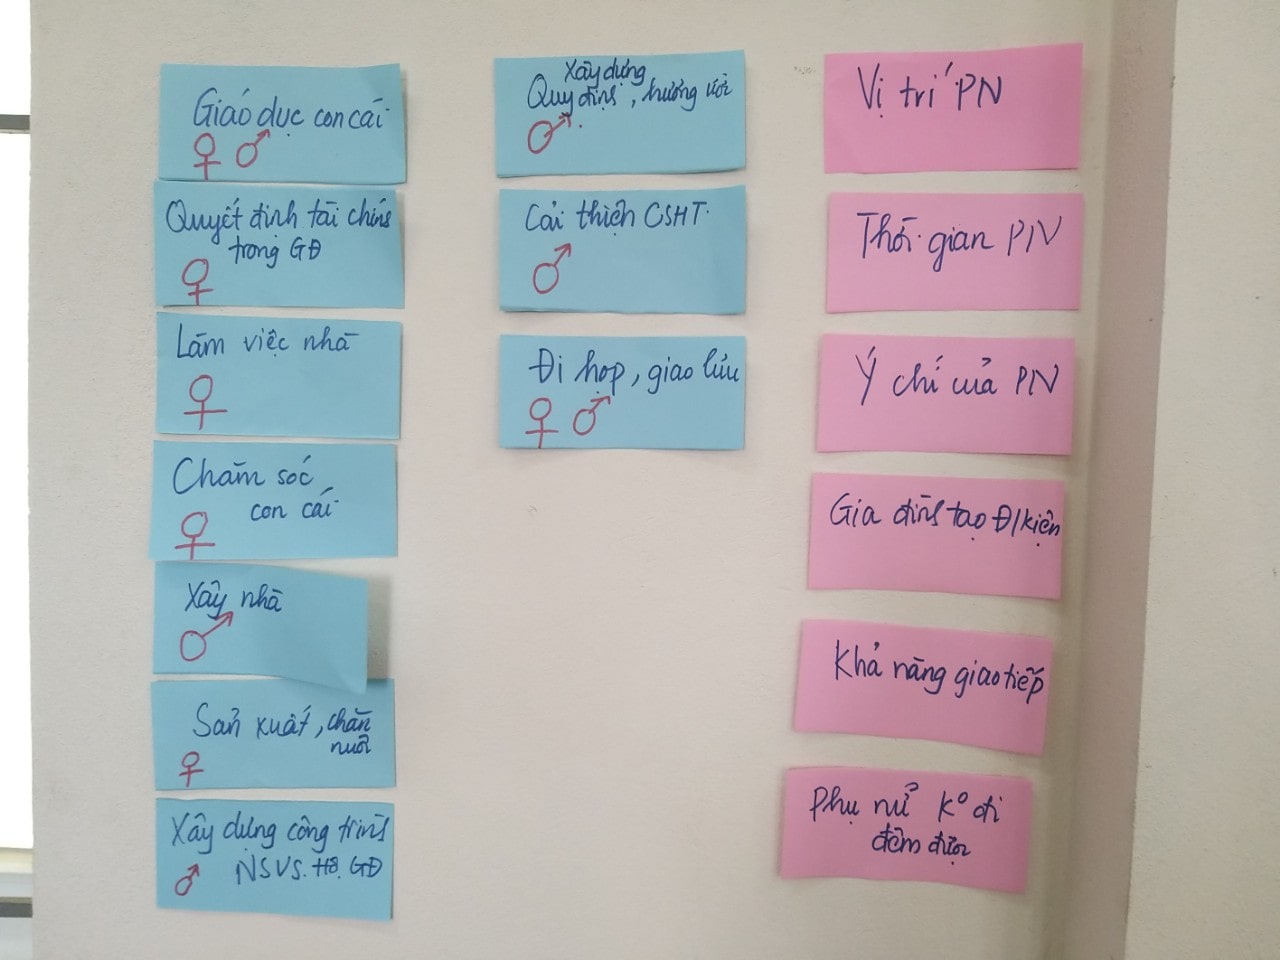 Giáo dục con cái
♀ ♂
Quyết định tài chính
trong GĐ
♀
Làm việc nhà
♀
Chăm sóc
con cái
♀
Xây nhà
♂
Sản xuất, chăn
nuôi
♀
Xây dựng công trình
NSVS. Hộ. GĐ
♂
Xây dựng
Quy định, hương ước
♂
Cải thiện CSHT
♂
Đi họp, giao lưu
♀ ♂
Vị trí PN
Thời gian PN
Ý chí của PN
Gia đình tạo Đ/kiện
Khả năng giao tiếp
Phụ nử K° đi
đêm được